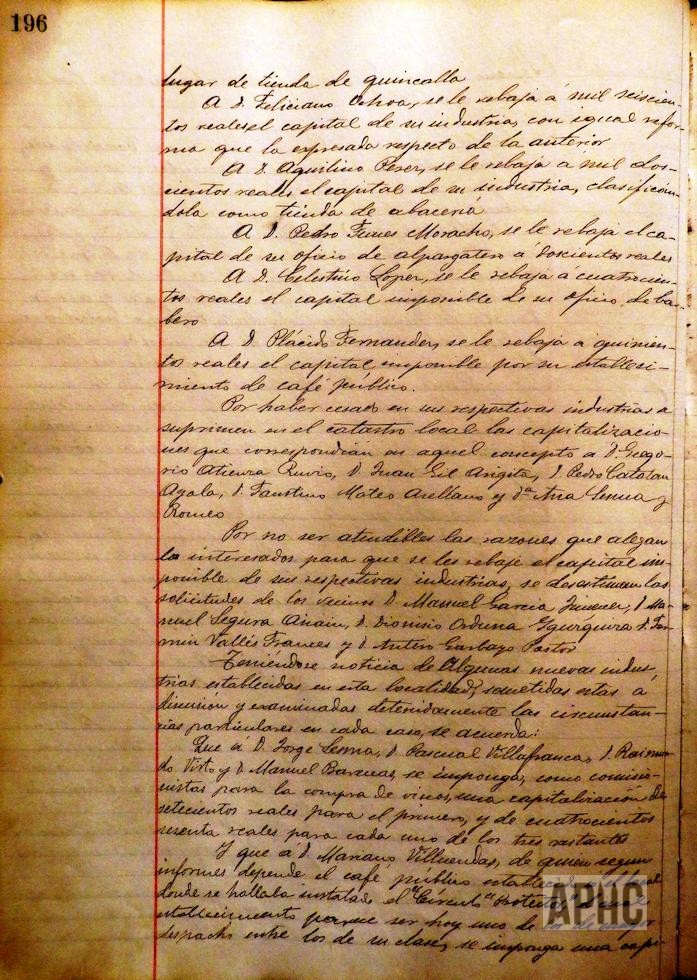 196
lugar de tienda de quincalla
A D. Feliciano Ochoa, se le rebaja á mil seiscien-
tos reales el capital de su industria, con igual refor-
ma que la expresada respecto de la anterior
A D. Aquilino Perez, se le rebaja a mil dos-
cientos reales el capital de su industria, clasificán-
dola como tienda de abacería
A D. Pedro Funes Moracho, se le rebaja el ca-
pital de su oficio de alpargatero á doscientos reales
A D. Celestino Lopez, se le rebaja á cuatrocien-
tos reales el capital imponible de su oficio de bar-
bero
A D. Plácido Fernandez, se le rebaja á quinien-
tos reales el capital imponible por su estableci-
miento de café público.
Por haber cesado en sus respectivas industrias se
suprimen en el catastro local las capitalizacio-
nes que correspondian en aquel concepto a D. Grego-
rio Atienza Ruvio, D. Juan Gil Angita, D. Pedro Catalan
Ayala, D. Faustino Mateo Arellano y Dª Ana Sesma y
Romeo
Por no ser atendibles las razones que alegan
los interesados para que se les rebaje el capital im-
ponible de sus respectivas industrias, se desestiman las
solicitudes de los vecinos D. Manuel Garcia Jimenez, D. Ma-
nuel Segura D. Dionisio Orduna D. Fer-
min Vallés Frances y D. Antero Garbayo Pastor
Teniéndose noticia de algunas nuevas indus-
trias establecidas en esta localidad, sometidas estas á
discusión y examinadas detenidamente las circunstan-
cias particulares en cada caso, se acuerda:
Que á D. Jorge Sesma, D. Pascual Villafranca, D. Raimun-
do Virto y D. Manuel se imponga, como comisio-
nistas para la compra de vinos, una capitalización de
setecientos reales para el primero, y de cuatrocientos
sesenta reales para cada uno de los tres restantes
Y que á D. Mariano Villuendas, de quien segun
informes depende el café público
donde se hallaba instalado el
establecimiento parece ser hoy uno de
despacho entre los de su clase, se imponga una capi-
APHC